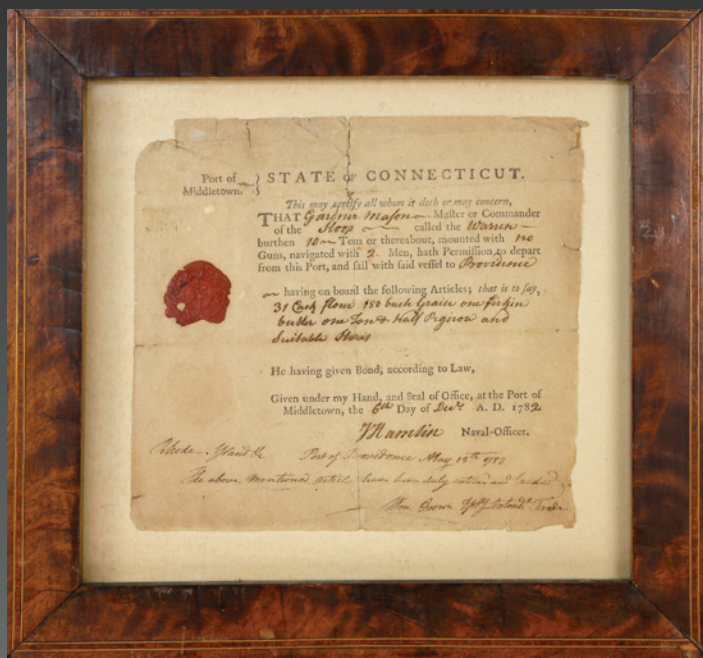 Port of Middletown. } STATE OF CONNECTICUT.
This may certify all whom it doth or may concern,
THAT Gardner Mason Master or Commander
of the Sloop called the Warren
burthen 10 Tons or thereabout, mounted with no
Guns, navigated with 2. Men, hath Permission to depart
from this Port, and sail with said vessel to Providence
having on board the following Articles; that is to say,
31 Cask flour 150 bush Grain one firkin
butter one Ton & Half Pigiron and
Suitable Stores
He having given Bond, according to Law,
Given under my Hand, and Seal of Office, at the Port of
Middletown, the 6th Day of Decr A. D. 1782
Hamlin Naval-Officer.
Rhode Island Port of Providence May 15th
The above mentioned have been duly entered and landed
Brown Trade